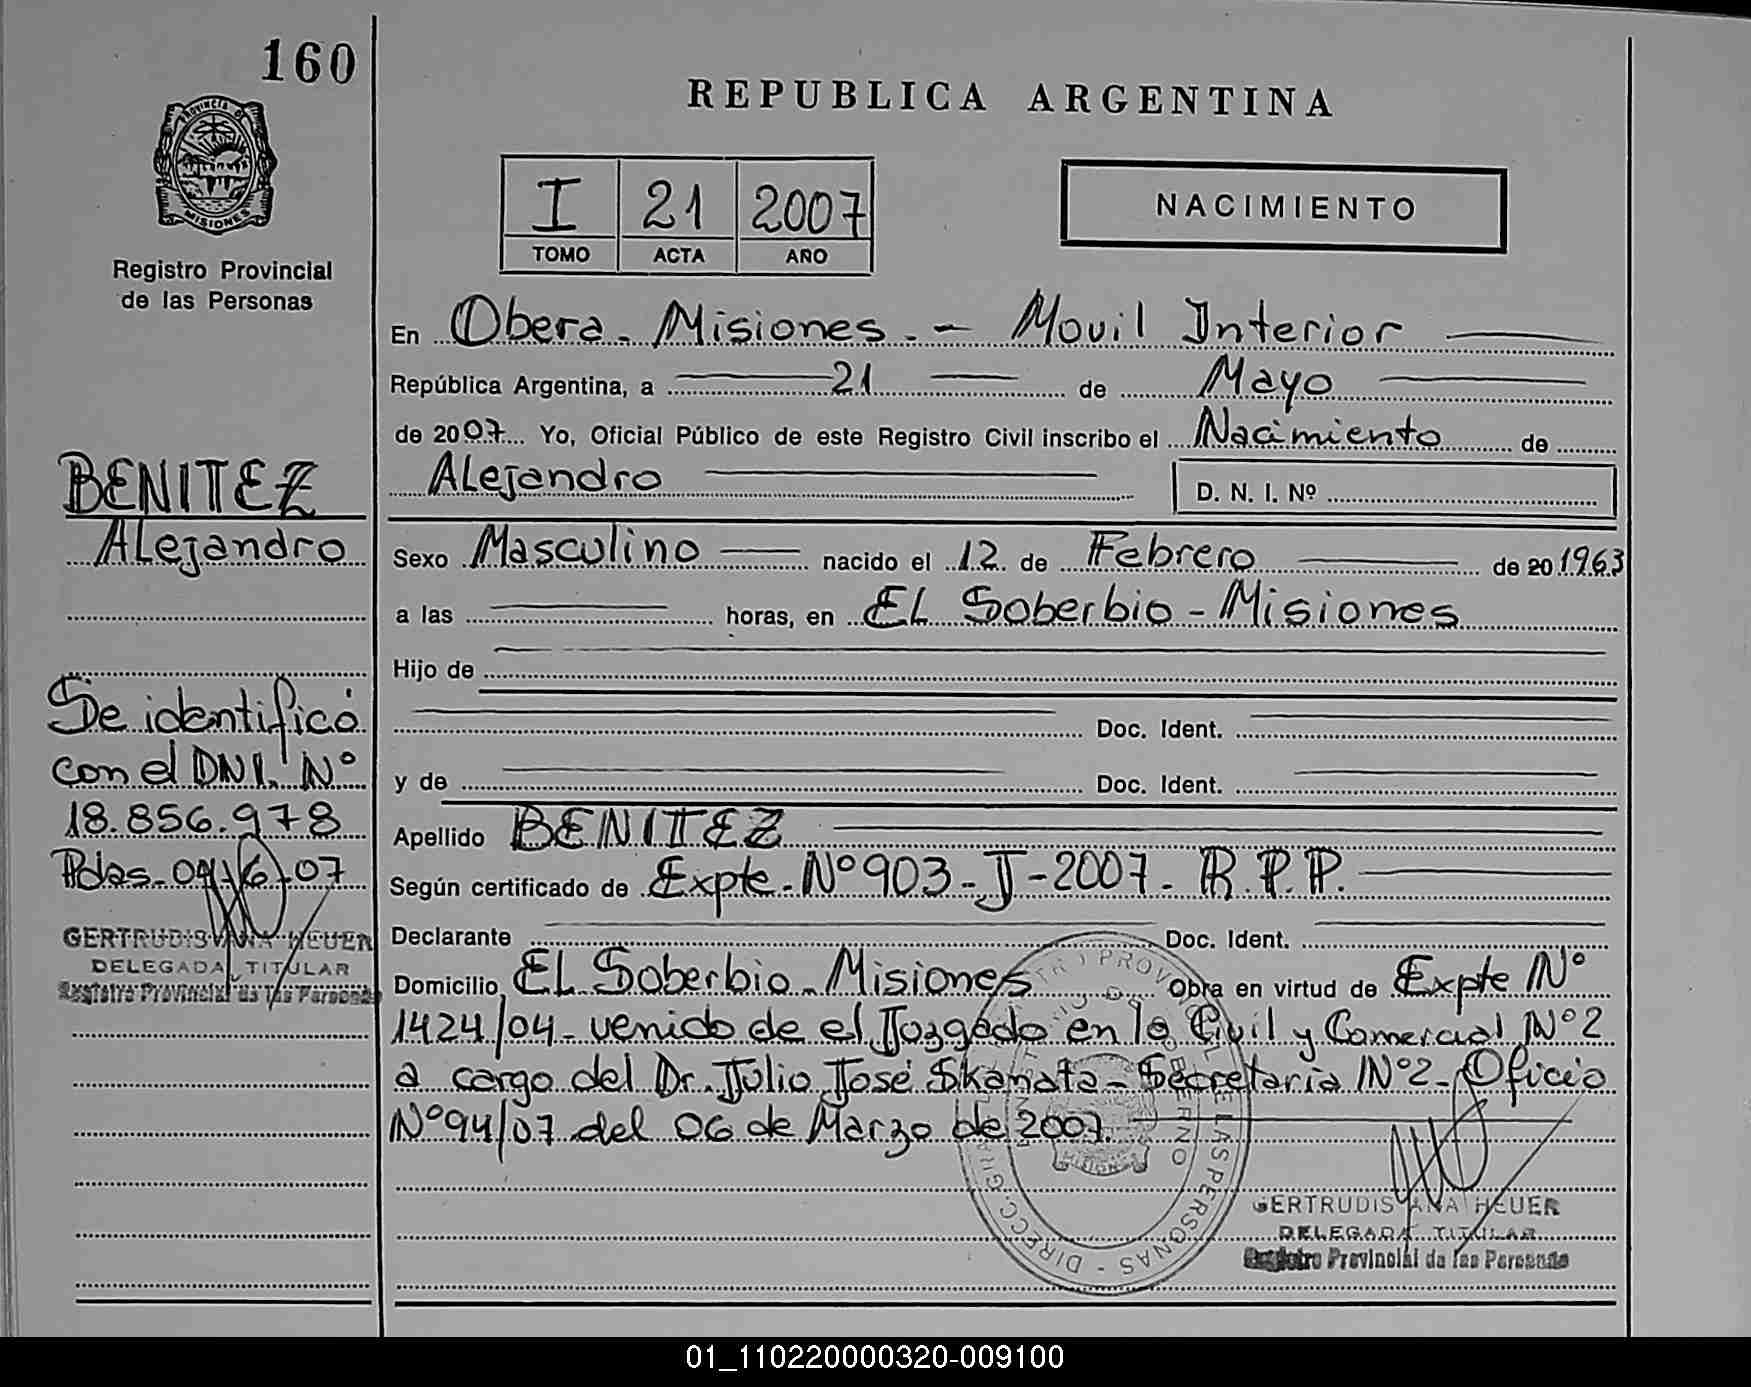 160
PROVINCIA DE
MISIONES
Registro Provincial
de las Personas
BENITEZ
Alejandro
Se identificó
con el DNI. Nº
18.856.978
Pdas. 04-6-07
GERTRUDIS ANA HEUER
DELEGADA TITULAR
Registro Provincial de las Personas
REPUBLICA ARGENTINA
I 21 2007
TOMO ACTA AÑO
NACIMIENTO
En Obera. Misiones. - Movil Interior
República Argentina, a 21 de Mayo
de 2007 Yo, Oficial Público de este Registro Civil inscribo el Nacimiento de
Alejandro D. N. I. Nº
Sexo Masculino nacido el 12 de Febrero de 20 1963
a las horas, en EL Soberbio - Misiones
Hijo de
Doc. Ident.
y de Doc. Ident.
Apellido BENITEZ
Según certificado de Expte. Nº 903-J-2007. R.P.P.
Declarante Doc. Ident.
Domicilio EL Soberbio. Misiones Obra en virtud de Expte Nº
1424/04- venido de el Juzgado en lo Civil y Comercial Nº 2
a cargo del Dr. Julio José Skanata - Secretaria Nº 2- Oficio
Nº 94/07 del 06 de Marzo de 2007.
GERTRUDIS ANA HEUER
DELEGADA TITULAR
Registro Provincial de las Personas
01_110220000320-009100